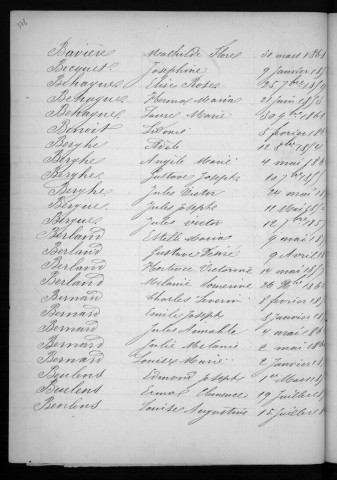 Bavière Mathilde Flore 30 mars 186
Becquet Joséphine 9 janvier 18
Behagues Elise Rosex 25
Behagues Hermex Maria 2 juin 18
Behagues Laure Marie 30 9bre 186
Benoit 5 février 18
Berghe Adèle 12 8bre
Berghe Angèle Marie 4 mai 186
Berghe Gustave Joseph 10 7bre
Berghe Jules Victor 24 mai 18
Bergue Jules Joseph 11 Mai 18
Bergues Jules Victor 12 7bre
Berland Maria 9 mai 18
Berland Gustave Désiré 9 Avril 18
Berland Hortence Victorine 14 mai 18
Berland Mélanie 26 186
Bernard Charles Séverin 8 février 18
Bernard Emile Joseph 8 janvier 18
Bernard Jules Aimable 4 mai 186
Bernard Julie Mélanie 2 mai 186
Bernard Louisex Marie 2 Janvier 18
Beulens Edmond Joseph 1er Mars 18
Beulens Ermax Clémence 19 Juillet 18
Beulens Louise Augustine 15 Juillet 18